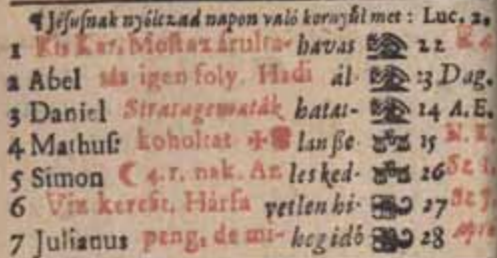 ¶ Jésusnak nyólczad napon való kornyúl met: Luc. 2.
1 Kis Kar. Most az árulta- havas 22
2 Abel igen foly. Hadi ál- 23 Dag.
3 Daniel Stratagematák hatat- 24 A. E.
4 Mathus: koholtat lanße 15
5 Simon ☾ 4. r. nak. Az lesked- 26
6 Viz kereszt, Hárfa vetlen hi- 27
7 Julianus peng, de mi- heg idó 28